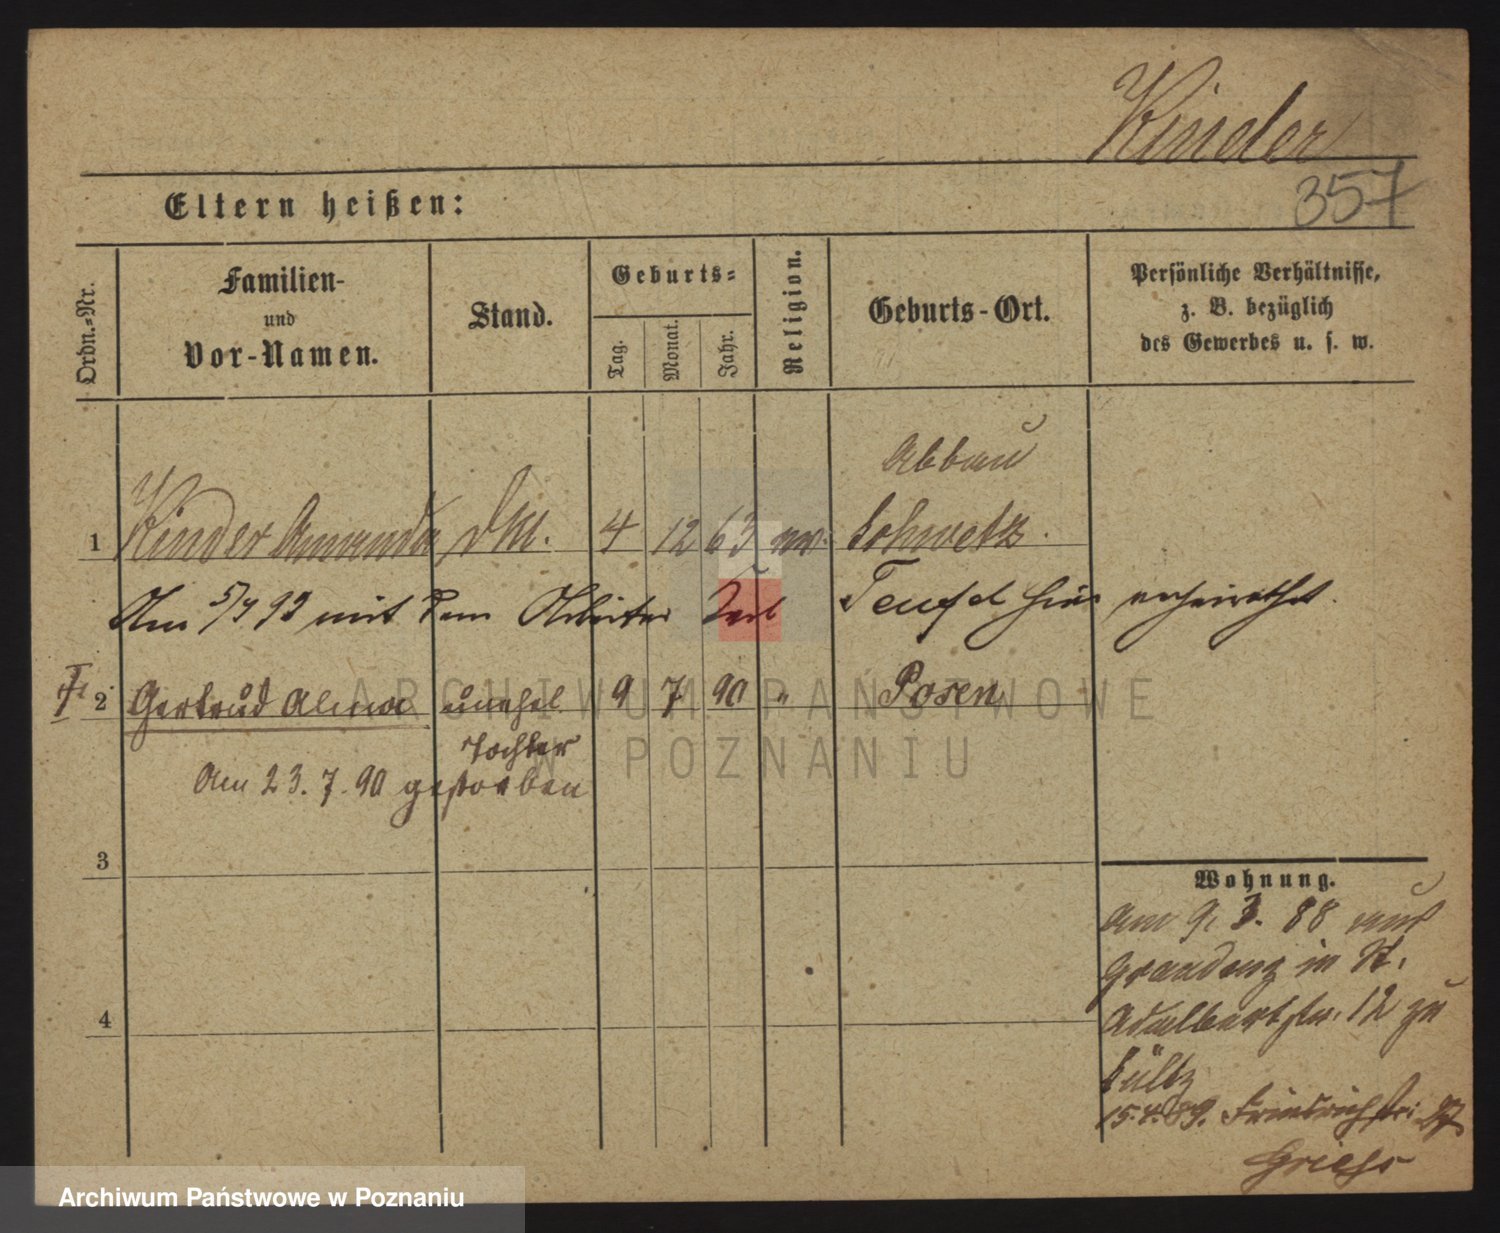 Kinder
357
Eltern heißen:
Ordn.-Nr.
Familien-
und
Vor-Namen.
Stand.
Geburts-
Tag.
Monat.
Jahr.
Religion.
Geburts-Ort.
Persönliche Verhältnisse,
z. B. bezüglich
des Gewerbes u. s. w.
Abbau
1 Kinder Amanda 4 12 63 Schwetz.
Am 5/7 93 mit dem Arbeiter Teufel hier verheirathet.
2 Gertrud Alma unehel. 9 7 90 " Posen
Tochter
Am 23. 7. 90 gestorben
3
4
Wohnung.
Am 9. 3. 88 aus
Graudenz in St.
Adalbertstr. 12 zu
15.4.89. Friedrichstr. 27
ARCHIWUM PAŃSTWOWE
W POZNANIU
Archiwum Państwowe w Poznaniu